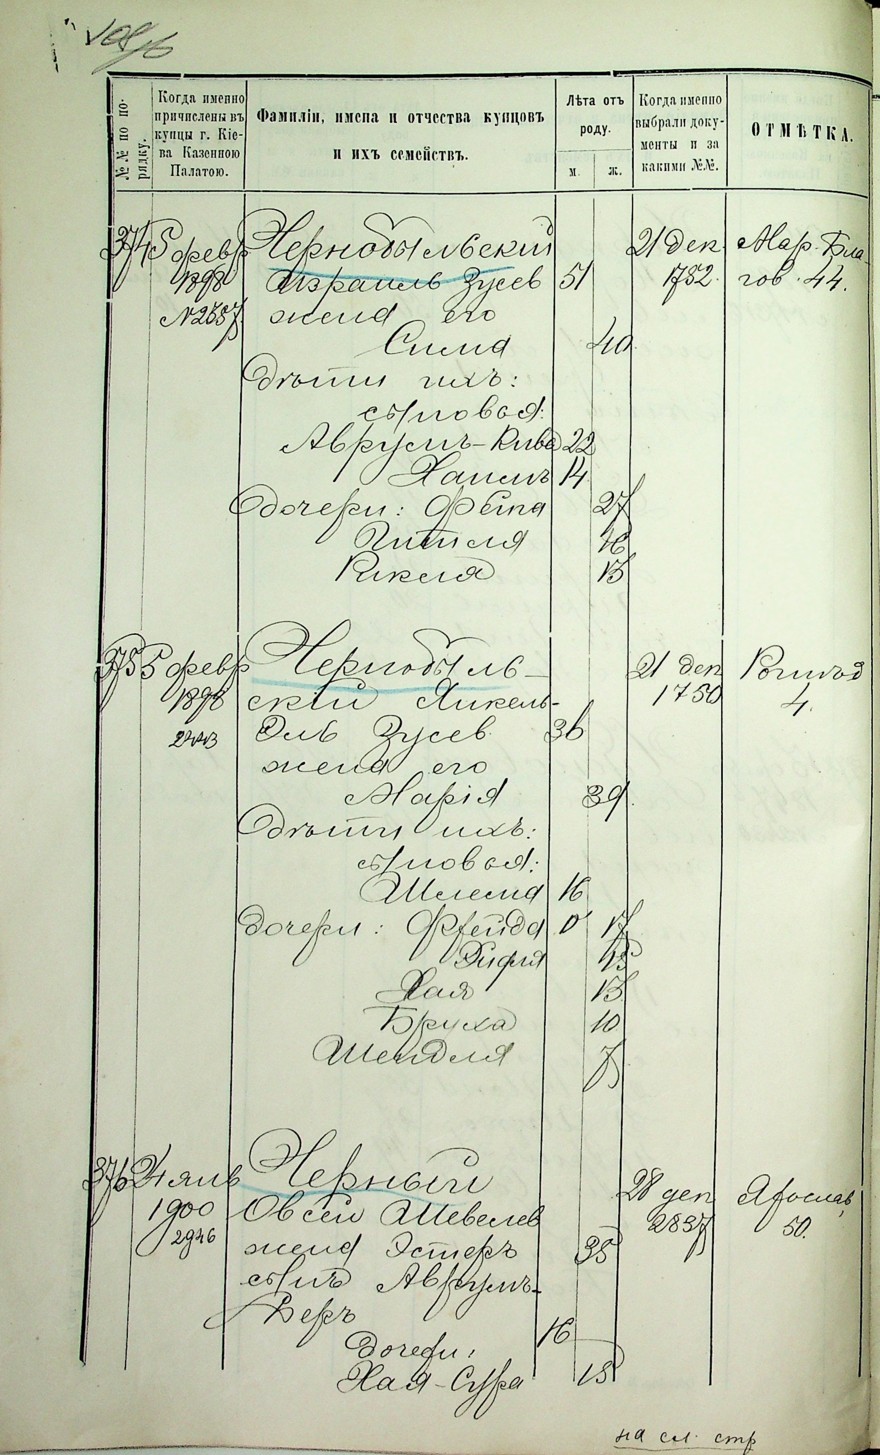 №№ по по-
рядку.
Когда именно
причислены въ
купцы г. Кіе-
ва Казенною
Палатою.
Фамиліи, имена и отчества купцовъ
и ихъ семействъ.
Лѣта отъ
роду.
м.
ж.
Когда именно
выбрали доку-
менты и за
какими №№.
ОТМѢТКА.
374 5 февр Чернобыльский 21 дек. Мар. Бла-
1898 Израиль Зусев 51 1752. гов. 44.
№2357 жена его
Сима 40
Дѣти ихъ:
сыновья:
Аврумъ-Кива 22
Хаимъ 14
Дочери: Фейга 27
Гитля 16
Рикеля 13
375 5 февр Чернобыль- 21 дек Рогнѣд
1898 скій Янкель- 1750 4.
2243 Эль Зусев 36
жена его
Марія 39.
Дѣти ихъ:
сыновья:
Шлема 16
дочери: Фрейда 17
Рифля 15
Хая 13
Бруха 10
Шендля 7
376 24 янв Черный 28 дек Ярослав
1900 Овсей Шевелев 2837 50.
2946 жена Эстеръ 35
сынъ Аврумъ-
Беръ 16
дочери:
Хая-Сура 15
на сл. стр